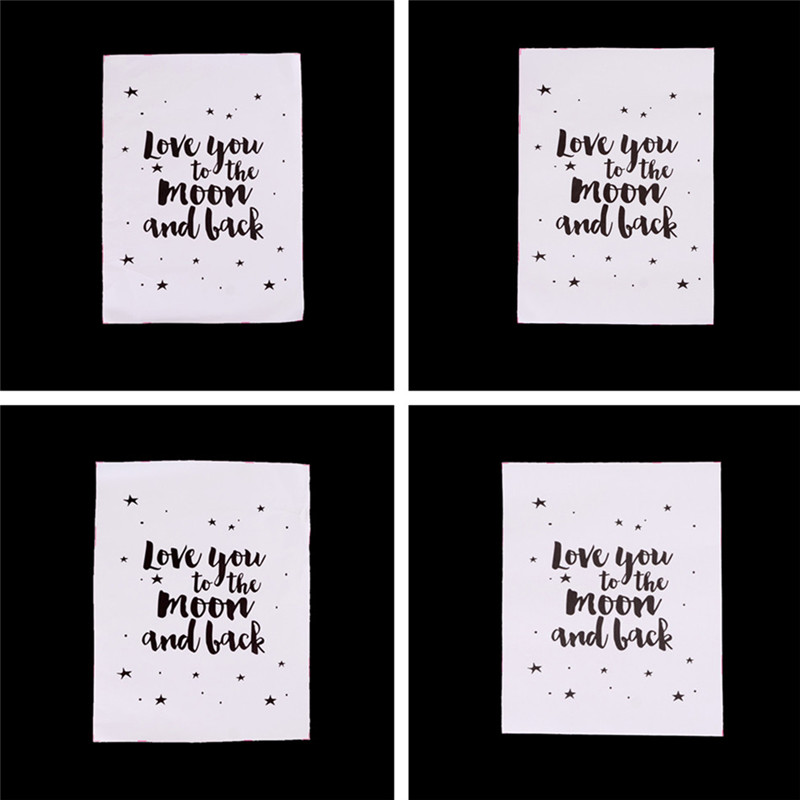 Love you
to the
moon
and back
Love you
to the
moon
and back
Love you
to the
moon
and back
Love you
to the
moon
and back